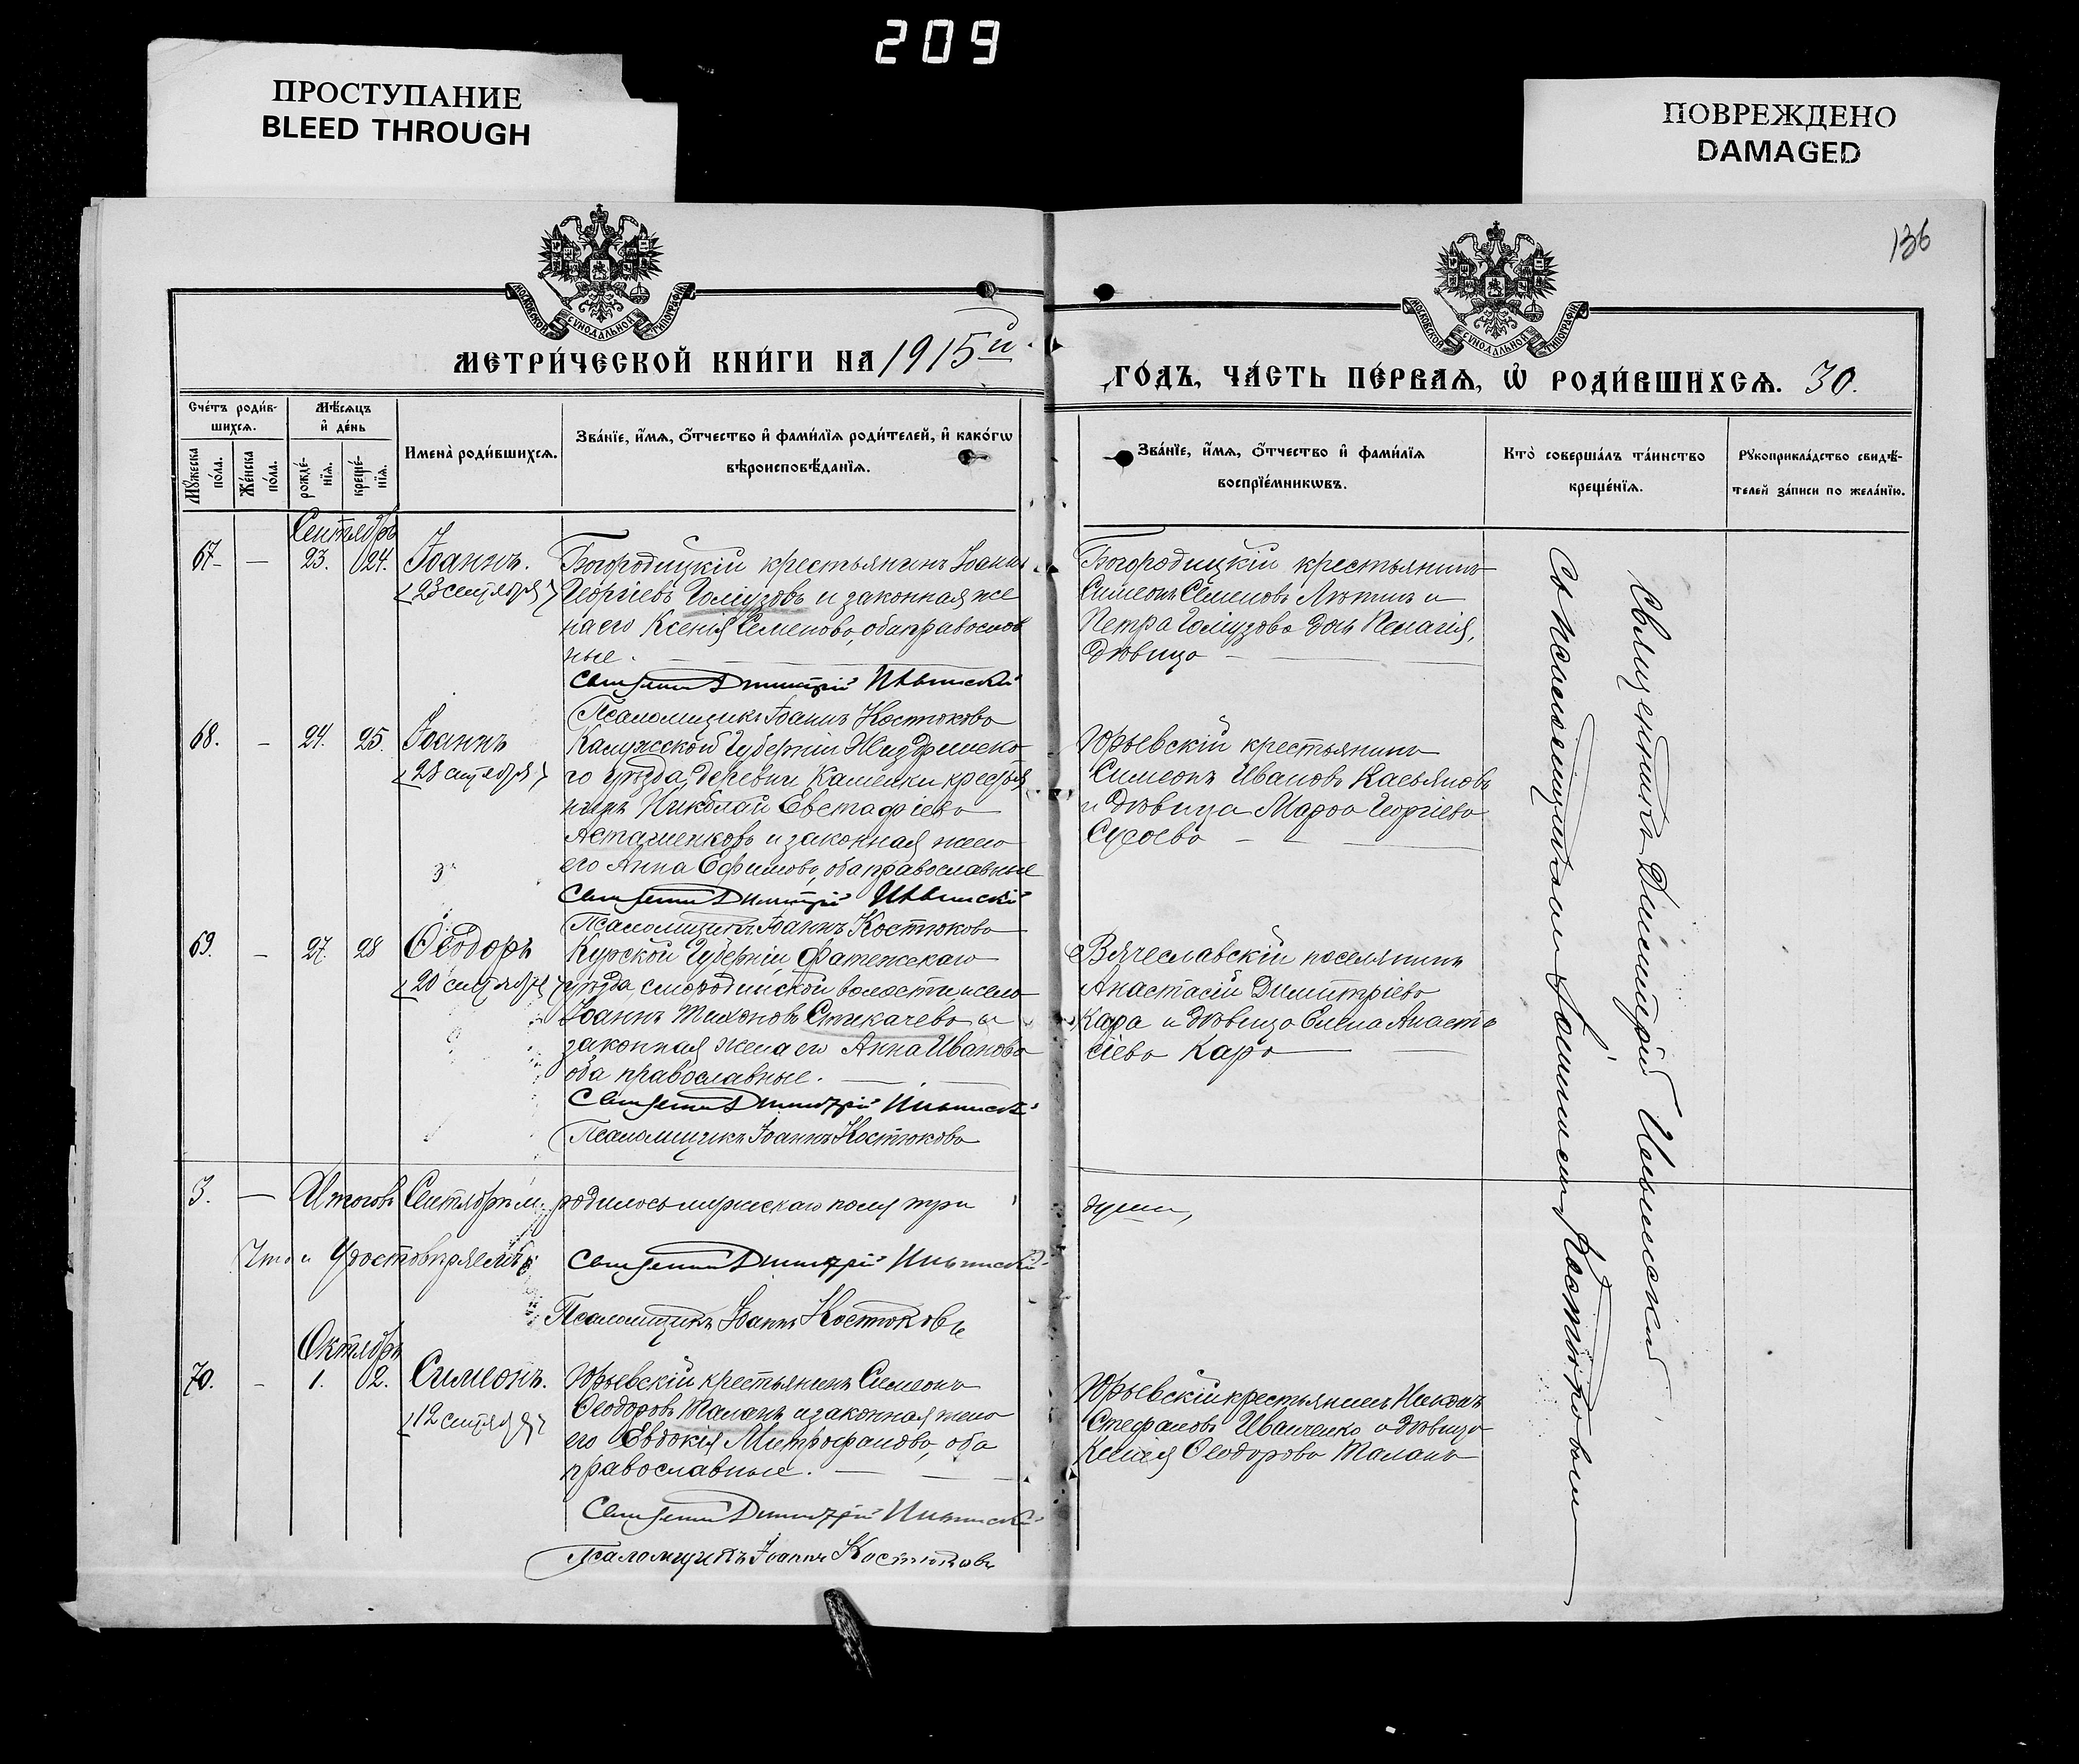 209
ПРОСТУПАНИЕ
BLEED THROUGH
ПОВРЕЖДЕНО
DAMAGED
136
МОСКОВСКОЙ СѴНОДАЛЬНОЙ ТИПОГРАФІИ
МОСКОВСКОЙ СѴНОДАЛЬНОЙ ТИПОГРАФІИ
МЕТРИ́ЧЕСКОЙ КНИ́ГИ НА 1915й
ГО́ДЪ, ЧА́СТЬ ПЕ́РВАѦ, Ѽ РОДИ́ВШИХСѦ. 30.
Сче́тъ роди́в-
шихсѧ.
Мѣ́сѧцъ
и҆ де́нь
Мꙋ́жеска
по́ла.
Же́нска
по́ла.
рожде́-
нїѧ.
креще́-
нїѧ.
Имена̀ роди́вшихсѧ.
Зва́нїе, и҆́мѧ, ѻ҆́тчество и҆ фами́лїѧ роди́телей, и҆ како́гѡ
вѣроисповѣ́данїѧ.
Зва́нїе, и҆́мѧ, ѻ҆́тчество и҆ фами́лїѧ
воспрїе́мникѡвъ.
Кто̀ соверша́лъ та́инство
креще́нїѧ.
Рꙋкоприкла́дство свидѣ́-
телей за́писи по жела́нїю.
Сентябрь
67 — 23. 24. Іоаннъ.
<23 сентября>
Богородицкій крестьянинъ Іоаннъ
Георгіевъ Голмузовъ и законная же
на его Ксенія Семенова, оба православ
ные.
Священникъ Димитрій Ильинскій
Псаломщикъ Іоаннъ Костюковъ
Богородицкій крестьянинъ
Симеонъ Семеновъ Лютинъ и
Петра Голмузова дочь Пелагія,
дѣвица
68. – 24. 25. Іоаннъ
<28 сентября>
Калужской Губерніи Жиздринско
го уѣзда, деревни Каменки крестья
нинъ Николай Евстафіевъ
Асташенковъ и законная жена
его Анна Ефимова, оба православные
Священникъ Димитрій Ильинскій
Псаломщикъ Іоаннъ Костюковъ
Юрьевскій крестьянинъ
Симеонъ Ивановъ Касьяновъ
и дѣвица Марѳа Георгіева
Сусоева
69. – 27. 28 Ѳеодоръ
<20 сентября>
Курской Губерніи, Фатежскаго
уѣзда, Смородинской волости, села
Іоаннъ Тихоновъ Стекачевъ и
законная жена его Анна Иванова
оба православные.
Священникъ Димитрій Ильинскій
Псаломщикъ Іоаннъ Костюковъ
Вячеславскій поселянинъ
Анастасій Димитріевъ
Кара и дѣвица Елена Анаста
сіева Кара
3. — Итого въ Сентябрѣ м. родилось мужескаго пола три
души,
Что и удостовѣряемъ:
Священникъ Димитрій Ильинскій
Псаломщикъ Іоаннъ Костюковъ
Октябрь
70. – 1. 2. Симеонъ.
<12 сентября>
Юрьевскій крестьянинъ Симеонъ
Ѳеодоровъ Таланъ и законная жена
его Евдокія Митрофанова, оба
православные.
Священникъ Димитрій Ильинскій
Псаломщикъ Іоаннъ Костюковъ
Юрьевскій крестьянинъ Никонъ
Стефановъ Иванченко и дѣвица
Ксенія Ѳеодорова Таланъ
Священникъ Димитрій Ильинскій
Съ псаломщикомъ Іоанномъ Костюковымъ